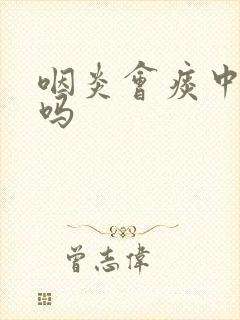 咽炎會痰中
吗
曾志偉